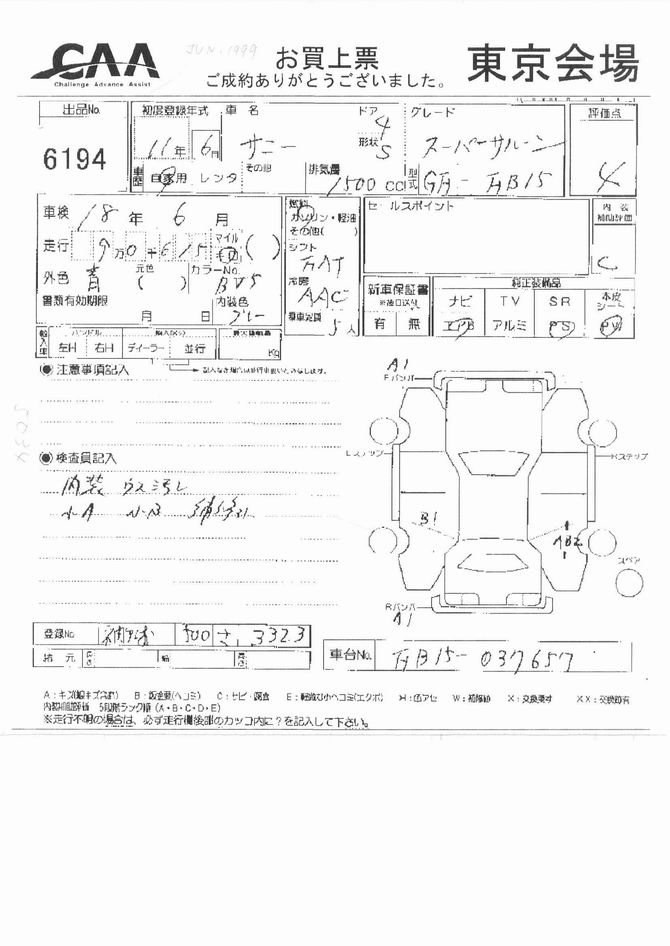 CAA
Challenge Advance Assist
JUN. 1999
お買上票
ご成約ありがとうございました。
東京会場
出品No.
6194
初度登録年式 車名 ドア グレード 評価点
11年 6月 サニー 4 スーパーサルーン 4
形状 S
車歴 自家用 レンタ その他 排気量 1500 CC 型式 GH-FB15
車検 18年 6月
燃料 ガソリン・軽油 その他( )
セールスポイント
内装補助評価
C
走行 9万0千615 マイル ( )
シフト FAT
外色 青 元色 ( ) カラーNo. BV5
冷房 AAC
書類有効期限 月 日 内装色 グレー
乗車定員 5人
新車保証書
※後日送付
有 無
純正装備品
ナビ TV SR 本皮シート
エアB アルミ PS PW
輸入車 ハンドル 輸入区分 最大積載量
左H 右H ディーラー 並行 Kg
◉ 注意事項記入
◉ 検査員記入
内装 ウスミ汚レ
小A 小B
A1
Fバンパ
Lステップ
Rステップ
B1
AB2
スペア
Rバンパ
A1
登録No. 500 さ 3323
諸元 長さ 幅 高さ
車台No. FB15-037657
A：キズ(線キズ含む) B：鈑金要(ヘコミ) C：サビ・腐食 E：軽微な小ヘコミ(エクボ) H：色アセ W：補修跡 X：交換要す XX：交換跡有
内装補助評価 5段階ランク順（A・B・C・D・E）
※走行不明の場合は、必ず走行欄後部のカッコ内に？を記入して下さい。